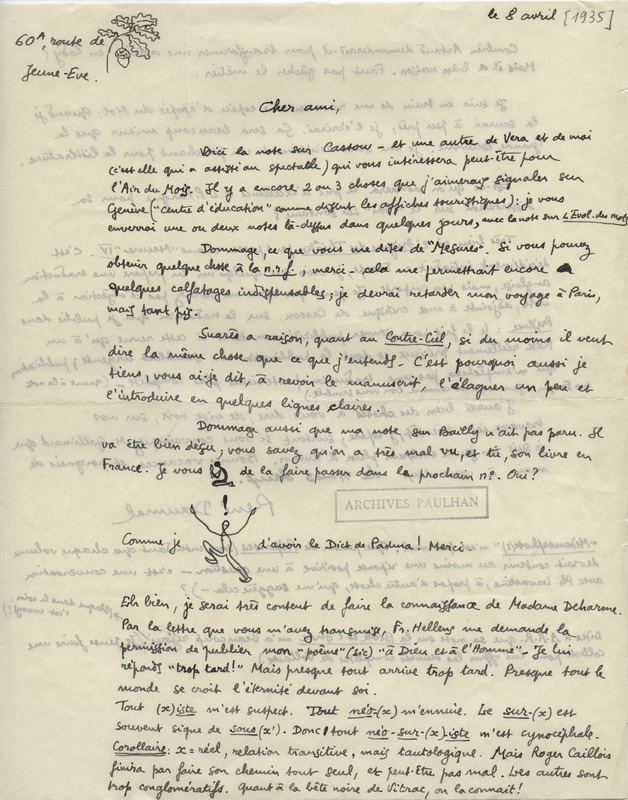 le 8 avril [1935]
60A, route de
Jeune-Eve.
Cher ami,
Voici la note sur Cassou - et une autre de Vera et de moi
(c'est elle qui a assisté au spectacle) qui vous intéressera peut-être pour
l'Air du Mois. Il y a encore 2 ou 3 choses que j'aimerais signaler sur
Genève ("centre d'éducation" comme disent les affiches touristiques): je vous
enverrai une ou deux notes là-dessus dans quelques jours, avec la note sur L'Evol. des mots
Dommage, ce que vous me dites de "Mesures". Si vous pouvez
obtenir quelque chose à la n.r.f., merci - cela me permettrait encore
quelques calfatages indispensables; je devrai retarder mon voyage à Paris,
mais tant pis.
Suarès a raison, quant au Contre-Ciel, si du moins il veut
dire la même chose que ce que j'entends. C'est pourquoi aussi je
tiens, vous ai-je dit, à revoir le manuscrit, l'élaguer un peu et
l'introduire en quelques lignes claires.
Dommage aussi que ma note sur Bailly n'ait pas paru. Il
va être bien déçu; vous savez qu'on a très mal vu, et tu, son livre en
France. Je vous de la faire passer dans le prochain nº. Oui?
ARCHIVES PAULHAN
Comme je ! d'avoir le Dict de Padma! Merci.
Eh bien, je serai très content de faire la connaissance de Madame Deharme.
Par la lettre que vous m'avez transmise, Fr. Hellens me demande la
permission de publier mon "poème" (sic) "à Dieu et à l'Homme". Je lui
réponds "trop tard!" Mais presque tout arrive trop tard. Presque tout le
monde se croit l'éternité devant soi.
Tout (x)iste m'est suspect. Tout néo-(x) m'ennuie. Le sur-(x) est
souvent signe de sous(x'). Donc: tout néo-sur-(x)-iste m'est cynocéphale.
Corollaire: x = réel, relation transitive, mais tautologique. Mais Roger Caillois
finira par faire son chemin tout seul, et peut-être pas mal. Les autres sont
trop conglomératifs. Quant à la bête noire de Vitrac, on la connaît!